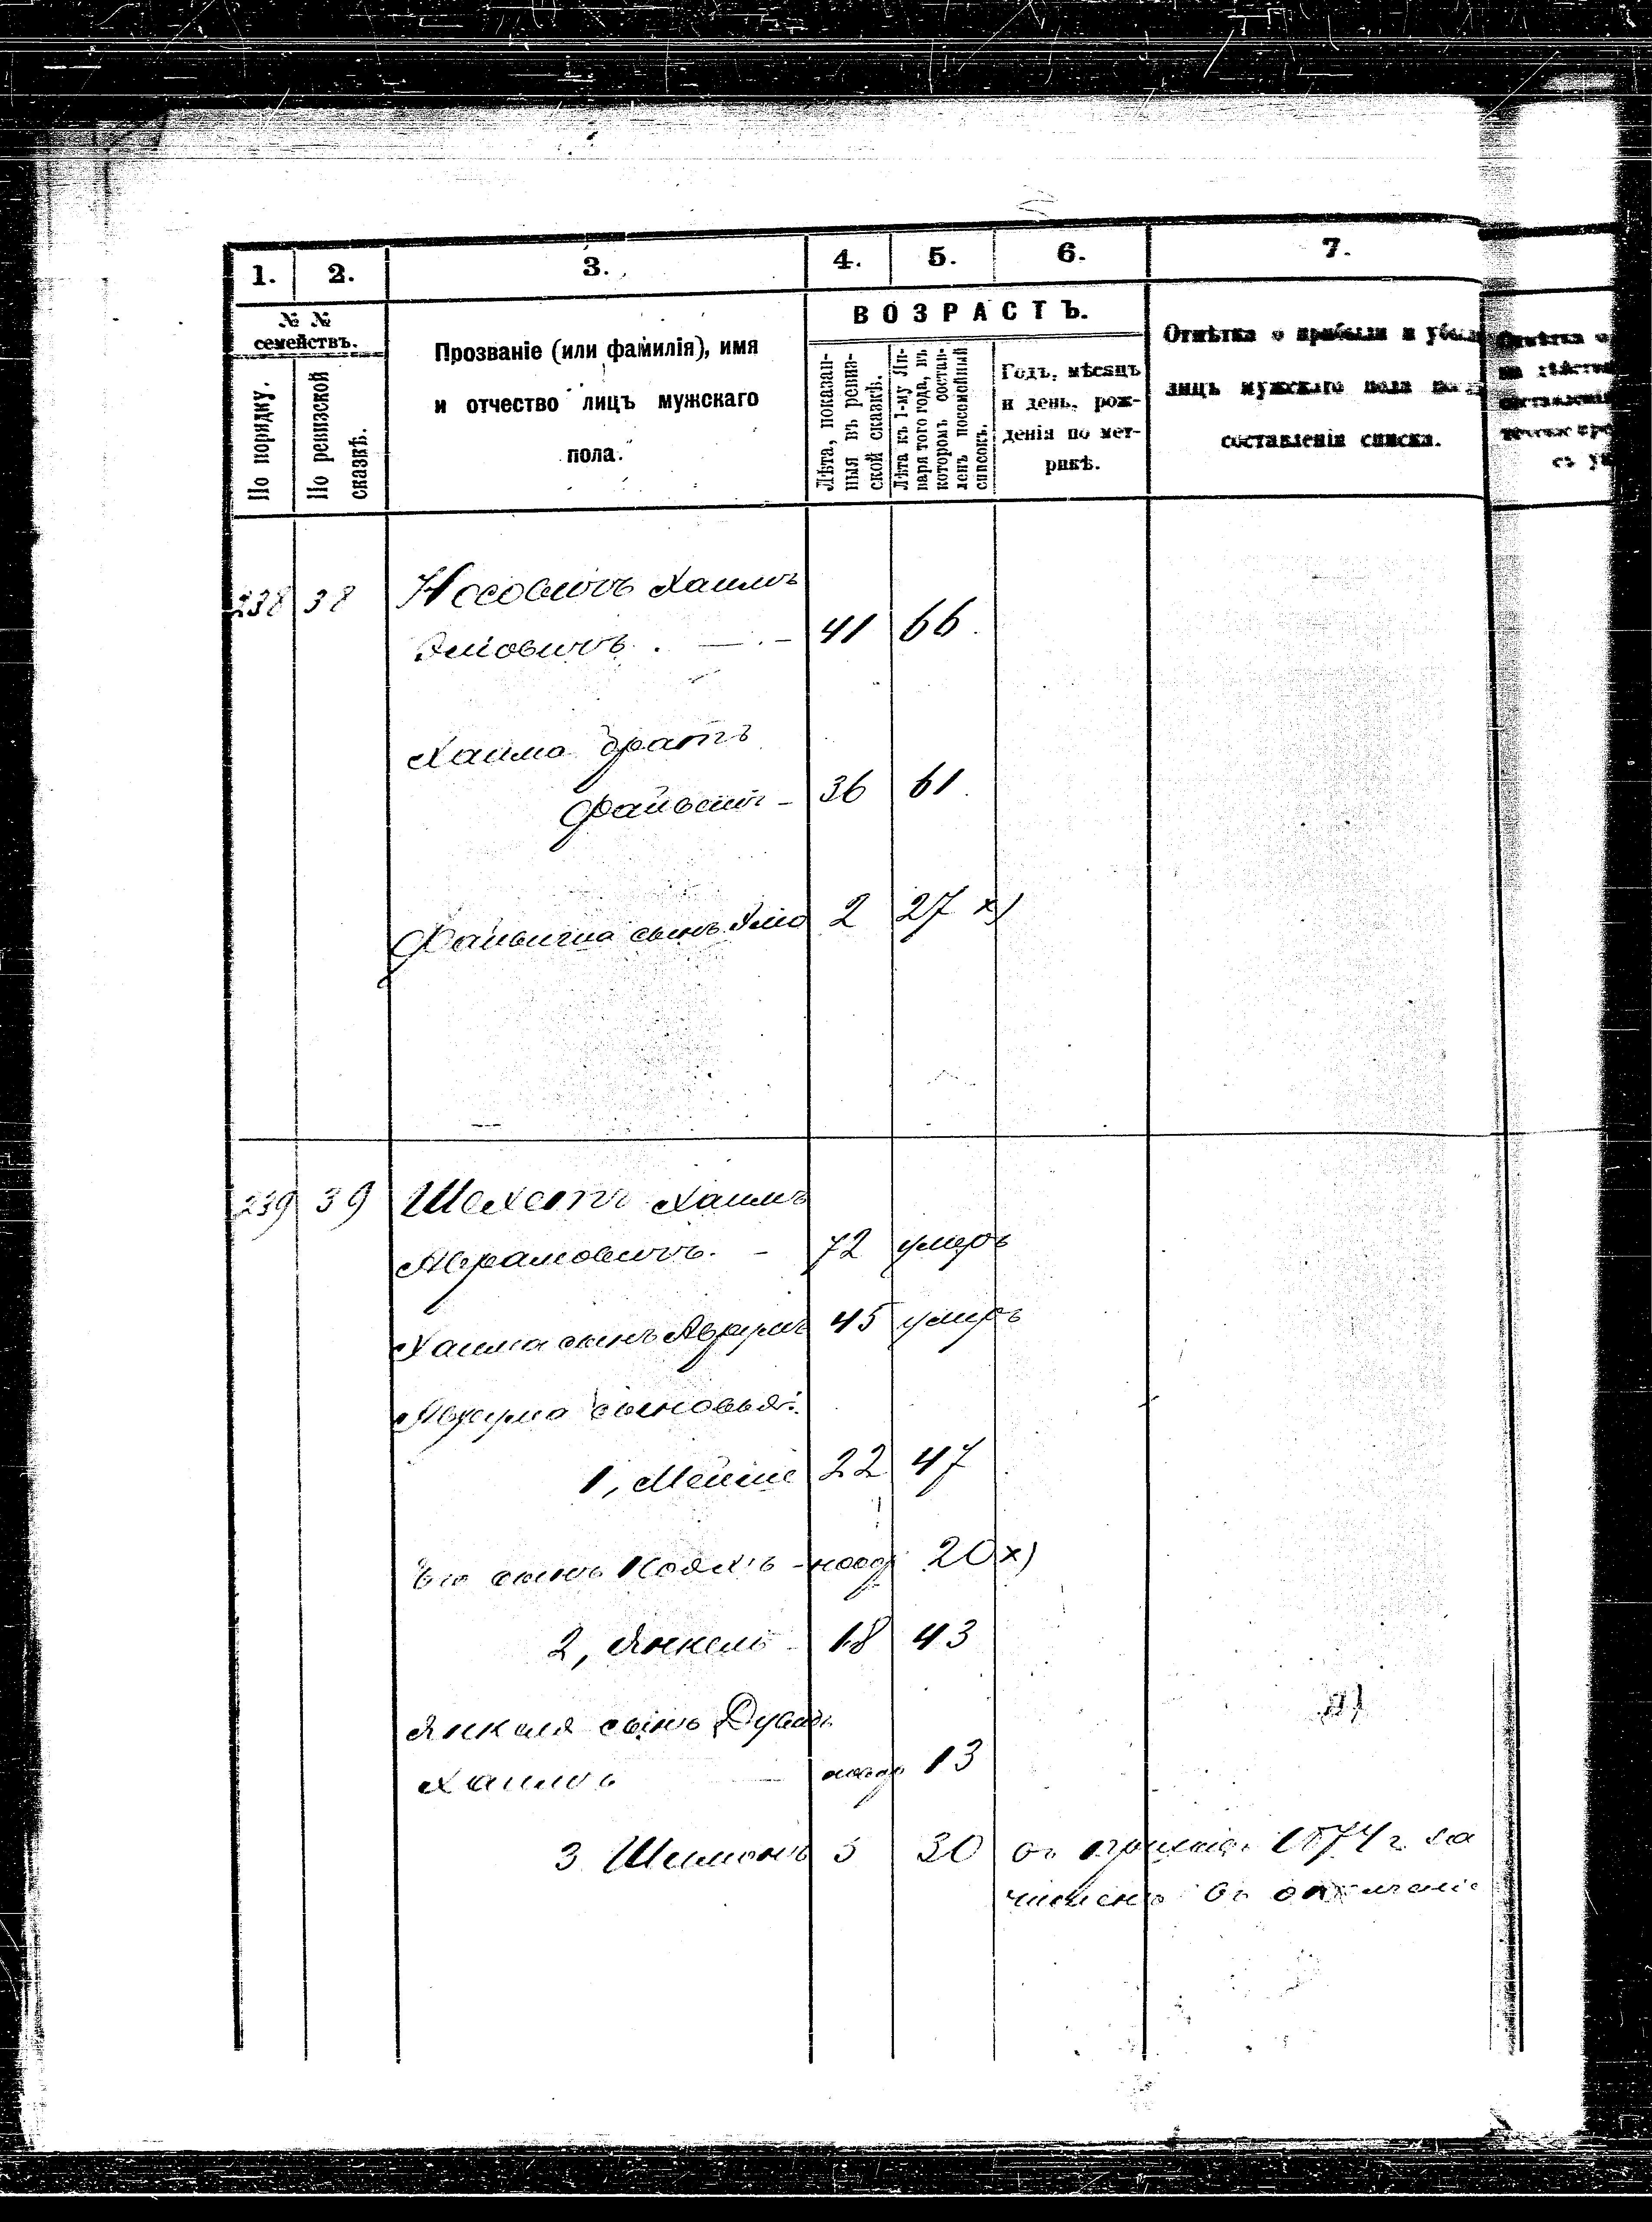 1. 2. 3. 4. 5. 6. 7.
№ №
семействъ.
По порядку.
По ревизской
сказкѣ.
Прозваніе (или фамилія), имя
и отчество лицъ мужскаго
пола.
ВОЗРАСТЪ.
Лѣта, показан-
ныя въ ревиз-
ской сказкѣ.
Лѣта къ 1-му Ян-
варя того года, въ
которомъ состав-
ленъ посемейный
списокъ.
Годъ, мѣсяцъ
и день, рож-
денія по мет-
рикѣ.
Отмѣтка о прибыли и убыли
лицъ мужскаго пола
составленія списка.
238 38 Носовичъ Хаимъ
Эліовичъ. 41 66.
Хаима братъ
Файвишъ 36 61.
Файвиша сынъ Эліа 2 27 х)
239 39 Шехетъ Хаимъ
Абрамовичъ. 72 умеръ
Хаима сынъ 45 умеръ
сыновья:
1, Мейше 22 47
Его сынъ 20 х)
2, Янкель 18 43
Янкеля сынъ
Хаимъ 13
3 Шимонъ 5 30 1874 г. за
численъ въ ополченіе